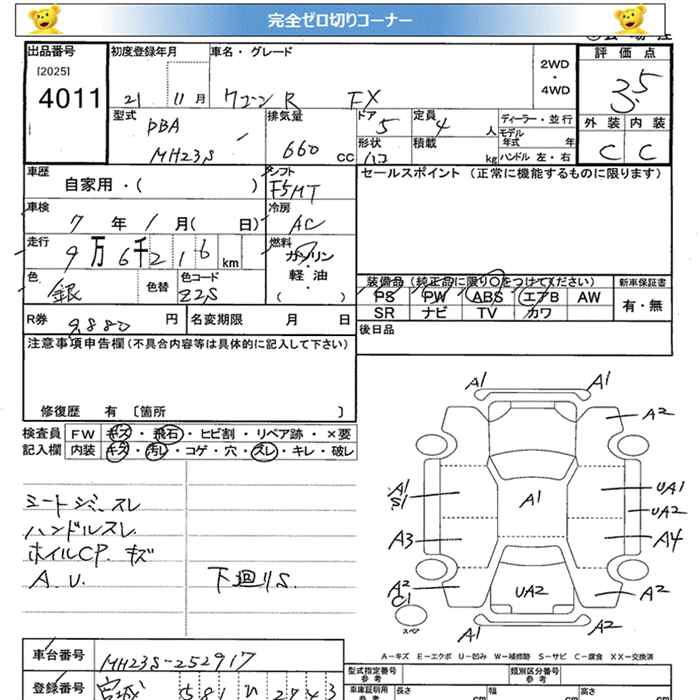 完全ゼロ切りコーナー
出品番号 初度登録年月 車名・グレード 2WD・4WD 評価点
[2025]
4011 21 11月 ワゴンR FX 3.5
型式 排気量 ドア 定員 ディーラー・並行 外装 内装
DBA 5 4人 モデル年式 年
MH23S 660cc 形状 積載 ハンドル 左・右 C C
ハコ kg
車歴 シフト セールスポイント (正常に機能するものに限ります)
自家用・( ) F5MT
車検 冷房
7年 1月( 日) AC
走行 燃料
9万6千216km ガソリン
軽・油
( )
色 色替 色コード
銀 Z2S
装備品 (純正品に限り○をつけてください) 新車保証書
PS PW ABS エアB AW 有・無
SR ナビ TV カワ
R券 9,880円 名変期限 月 日 後日品
注意事項申告欄(不具合内容等は具体的に記入して下さい)
修復歴 有 〔箇所 〕
検査員 FW キズ・飛石・ヒビ割・リペア跡・×要
記入欄 内装 キズ・汚レ・コゲ・穴・スレ・キレ・破レ
シートシミ、スレ
ハンドルスレ
ホイルCP.キズ
A.U. 下回りS.
A1 A1
A2
A1 S1 A1 UA1
UA2
A3 A4
A2 C1 UA2 A2
スペア
A1 A2
A-キズ E-エクボ U-凹み W-補修跡 S-サビ C-腐食 XX-交換済
車台番号 MH23S-252917
型式指定番号 参考 類別区分番号 参考
登録番号 宮城 581 ひ 2743
車庫証明用 参考 長さ cm 幅 cm 高さ cm